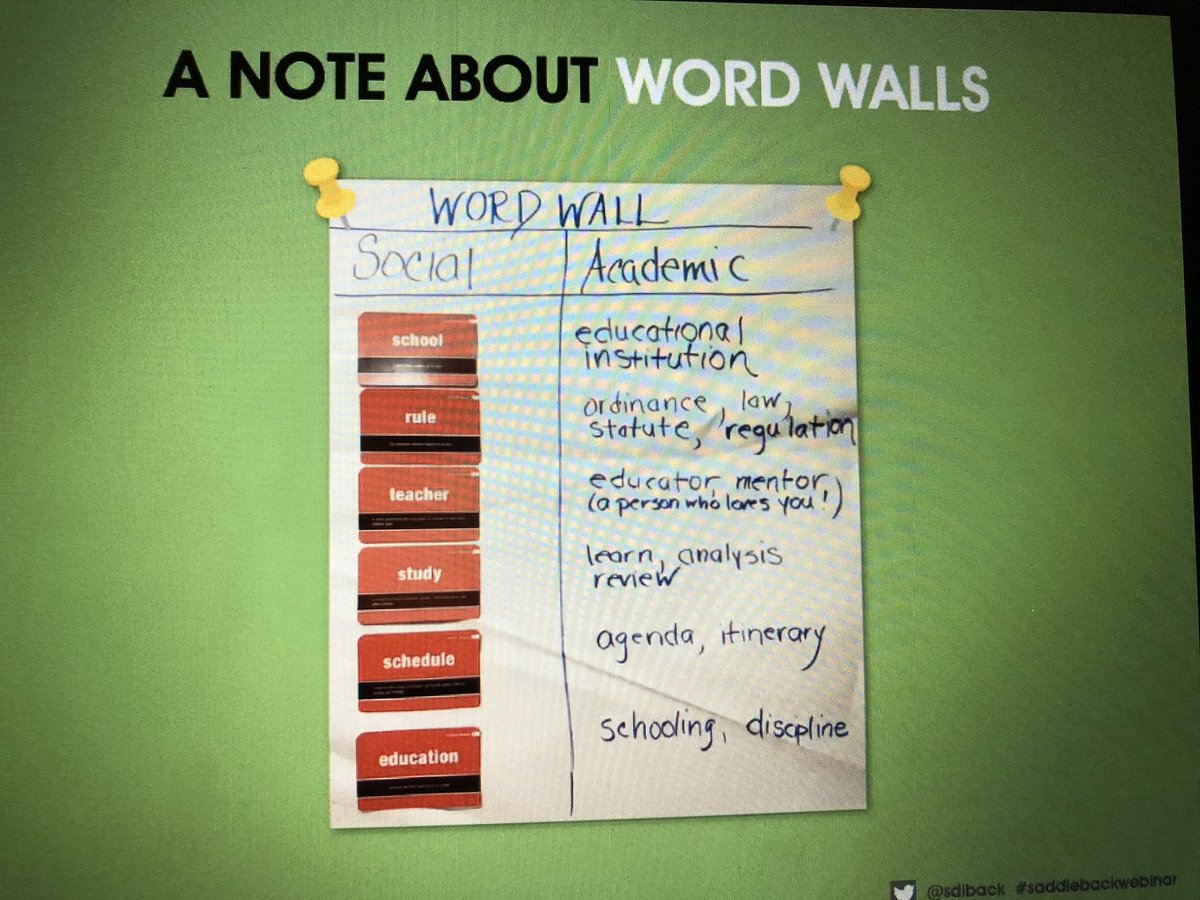 A NOTE ABOUT WORD WALLS
WORD WALL
Social
Academic
school
educational
institution
rule
ordinance, law,
statute, regulation
teacher
educator, mentor
(a person who loves you!)
study
learn, analysis
review
schedule
agenda, itinerary
education
schooling, discpline
@sdlback #saddlebackwebinar